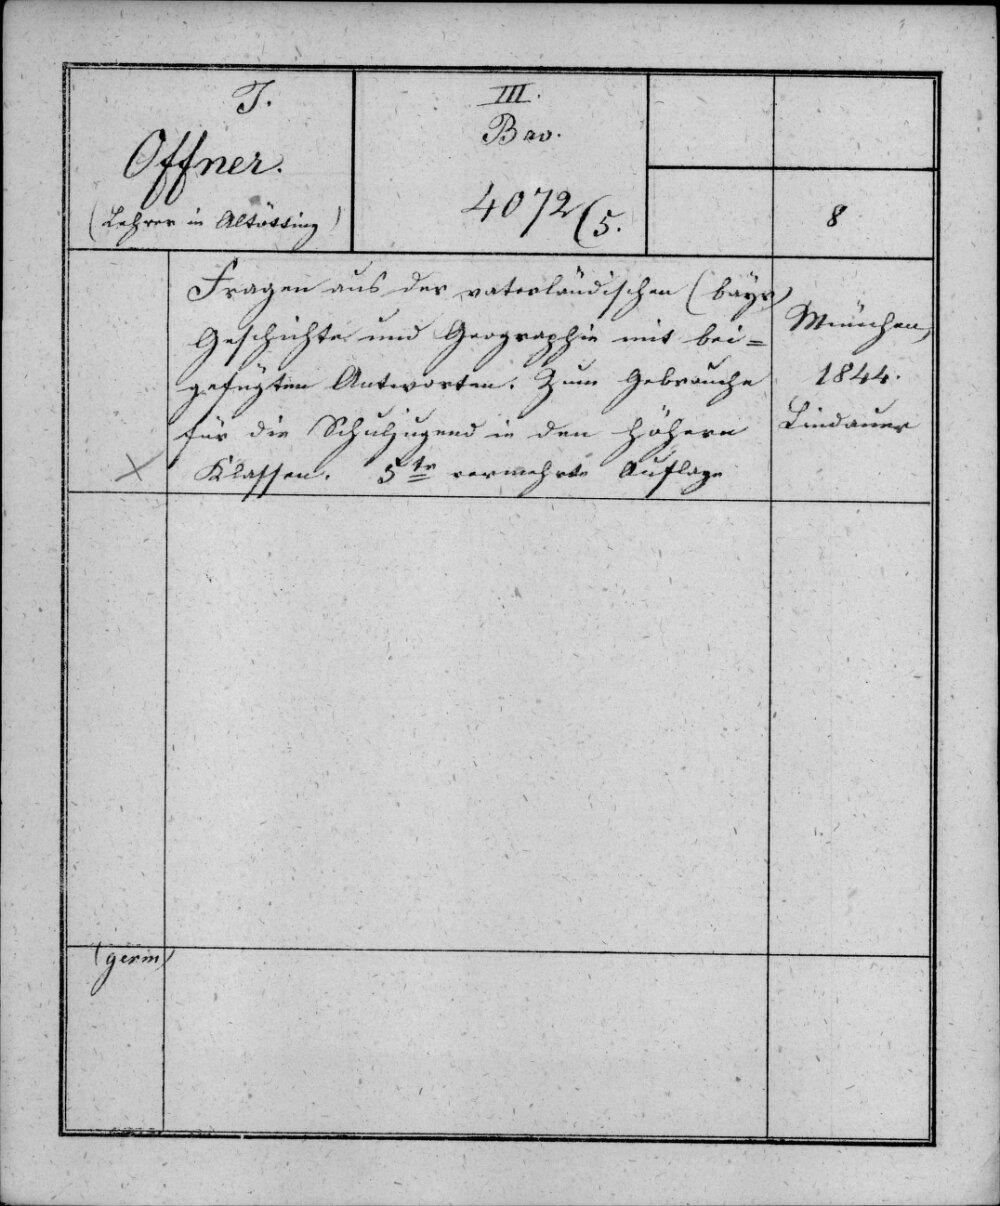 J.
Offner.
(Lehrer in Altötting)
III.
Bav.
4072(5.
8
Fragen aus der vaterländischen (bayr)
Geschichte und Geographie mit bei=
gefügten Antworten. Zum Gebrauche
für die Schuljugend in den höhern
Klassen. 5te vermehrte Auflage
München,
1844.
Lindauer
(germ)